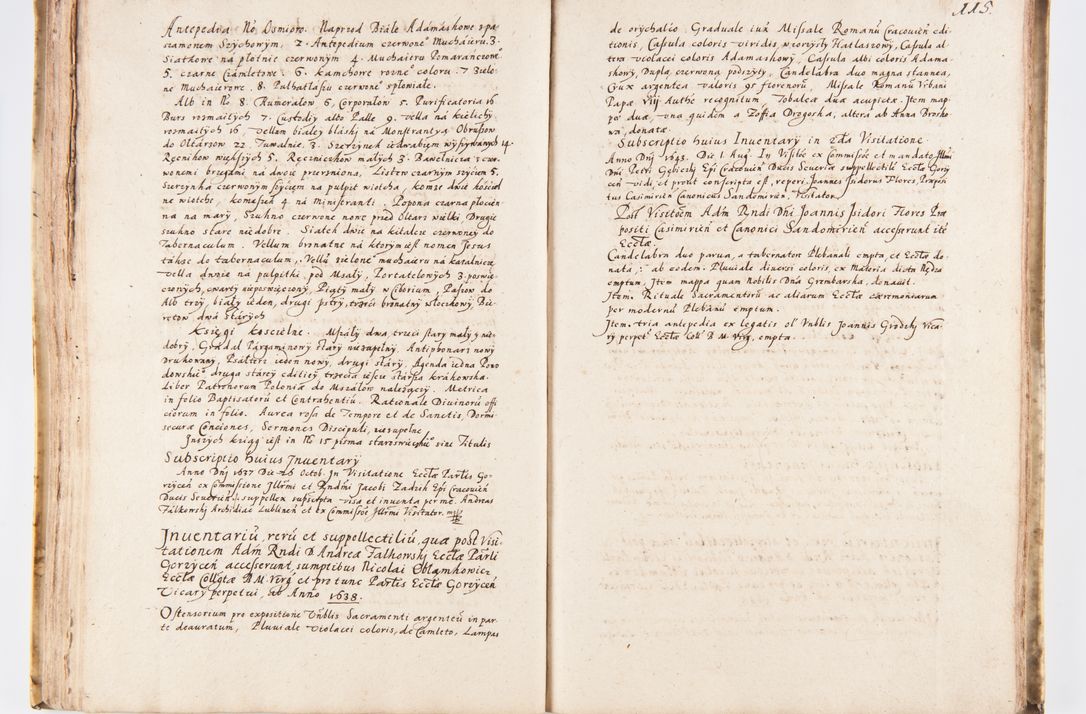 Antepedia No Osmioro. Naprzod Białe Adámászkowe z pa-
szamonem Szychowym, 2. Antepedium czerwone Mucháiéru. 3.
Siatkowe ná płotnie czerwonym 4. Mucháieru Pomarańczowe
5. czarne Czámletowe. 6. kámchowe rozne coloru. 7 Zielo-
ne Mucháierowe. 8. Pułhatłásiu czerwone spłowiałe.
Alb in No 8. Humerałow 6, Corporałow 5. Purificatoria 16
Burs rozmáitych 7. Custodiy álbo Palle 9. Vella ná kielichy
rozmáitych 16, Vellum białey ná Monstrántyą. Obrusow
do Ołtárzow 22. Tuwalnie. 3.
Ręcznikow większych 5. Ręczniczkow máłych 3. Báwełnicza z czer-
wonemi brzegámi Listew czarnym szyciem 5.
czerwonym szyciem ná pulpit wiotcha, komże dwie kościel
ne wiotche, komeszek 4 ná ministránti. Popona czarna płocien
na ná máry, Szukno czerwone nowe przed Ołtarz wielki Drugie
szukno stáre niedobre. Siatek dwie ná kitáice czerwoney do
Tabernaculum. Vellum brunatne ná ktorym iest nomen Jesus
tákże do tabernaculum, Vella zielone mucháieru ná
vella dunie ná pulpitki pod Mszały, Portatelowych 3. poświe-
conych, czwarty niepoświęcony, Piąty máły w Ciborium, Pasow do
Alb troy, biały ieden, drugi pstry, trzeci brunatny włoczkowy, Bie-
retow dwá Stárych
Księgi kościelne. Mszały dwá trzeci stáry máły y nie-
dobry, Gradał Párgáminowy stáry niezupełny, Antiphonarz nowy
drukowany, Psałterz ieden nowy, drugi stáry. Agenda iedná Powo
dowskie drugá stárey ediciey trzecia iescze stárszá krákowska.
Liber Patronorum Poloniæ do Mszałow nalezączy. Metrica
in folio Baptisatorū et Contrahentiū. Rationale Divinorū offi
ciorum in folio. Aurea rosa de Tempore et de Sanctis, Dormi
securæ Conciones, Sermones Discipuli, niezupełne.
Inszych kxiąg iest in No 15 pismá stároświeckie sine Titulis
Subscriptio huius Inventarÿ
Anno Dnj 1637 Die 26 Octob. In Visitatione Ecclæ Partis Go-
rzycen ex Commissione Jllrmi et Rndmi Jacobi Zadzik Epi Cracovien
Ducis Severien: suppellex supscripta visa et inventa per me. Andreas
Fálkowskj Archidiac Lublinen et ex Commissõe Jllrmi Visitator. mp
Inventariū, rerū et suppellectiliū, quæ post Visi-
tationem Adm Rndi D Andreæ Falkowskj Ecclæ Parłi
Gorzycen accesserunt, sumptibus Nicolai Oblamkowicz
Ecclæ Collgtæ B M Virg et pro tunc Partis Ecclæ Gorzycen
Vicarÿ perpetui, ab Anno 1638.
Ostensorium pro expositione Vnblis Sacramenti argenteū in par-
te deauratum, Pluviale violacei coloris, de Camleto, Lampas
115.
de orÿchalco, Graduale iux Missale Romanū Cracovien edi
tionis, Casula coloris viridis, wiorzysty Hatłaszowy, Casula al
tera violacei coloris Adamaskowy, Casula albi coloris Adama-
skowy, Dupla, czerwoną podszyty, Candelabra duo magna stannea,
Crux argentea valoris 95 florenorū, Missale Romanū Vrbani
Papæ VIII Authe recognitum, Tobaleæ duæ acupictæ. Item map
pæ duæ, una quidem a Zofia Drogoska, altera ab Anna Brosko-
wa, donatæ.
Subscriptio huius Inventarÿ in 2da Visitatione.
Anno Dnj 1643. Die 1. Aug. In Visitõe ex Commissõe et mandato Jllmi
Dni Petri Gębiczkj Epi Cracovien Ducis Severiæ suppellectile Ecclæ Gorzy
cen vidi, et prout conscripta est, reperi. Joannes Isidorus Flores, Præposi
tus Casimirien Canonicus Sandomirien, Visitator.
Post Visitõem Adm Rndi Dni Joannis Isidori Flores Præ
positi Casimirien et Canonici Sandomirien accesserunt itẽ
Ecclæ.
Candelabra duo parva, a tabernatore Plebanali empta, et Ecclæ do-
nata, ab eodem. Pluviale diversi coloris, ex Materia dicta Nędza
emptum, Item mappa quam nobilis Dna Grembarska, donavit.
Item. Rituale Sacramentorū ac aliarum Ecclæ cæremoniarum
per modernū Plebanū emptum.
Item. tria antepedia ex legatis ol Vnblis Joannis Grodzkj vica-
rÿ perpet Ecclæ Coll B M. Virg. empta.